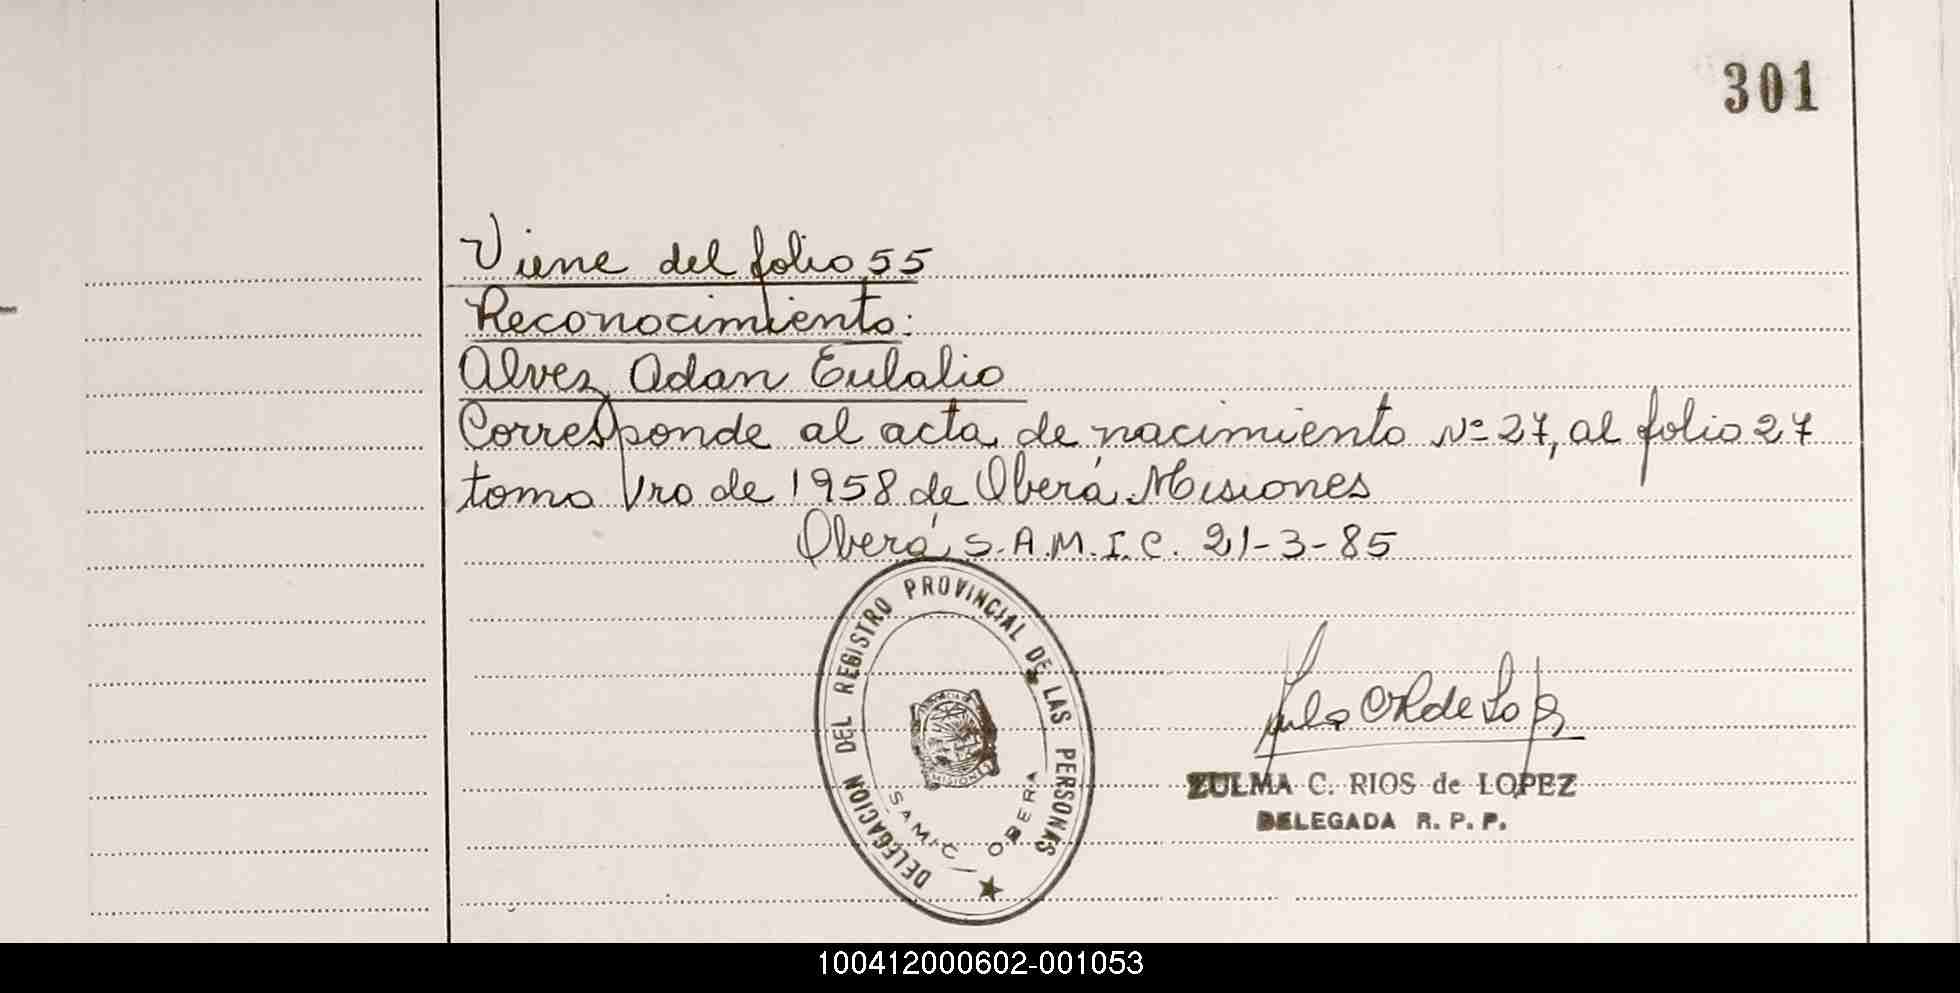 301
Viene del folio 55
Reconocimiento:
Alvez Adan Eulalio
Corresponde al acta de nacimiento Nº 27, al folio 27
tomo 1ro de 1958 de Oberá Misiones
Oberá S.A.M.I.C. 21-3-85
DELEGACION DEL REGISTRO PROVINCIAL DE LAS PERSONAS
SAMIC OBERA
MISIONES
ZULMA C. RIOS de LOPEZ
DELEGADA R. P. P.
100412000602-001053